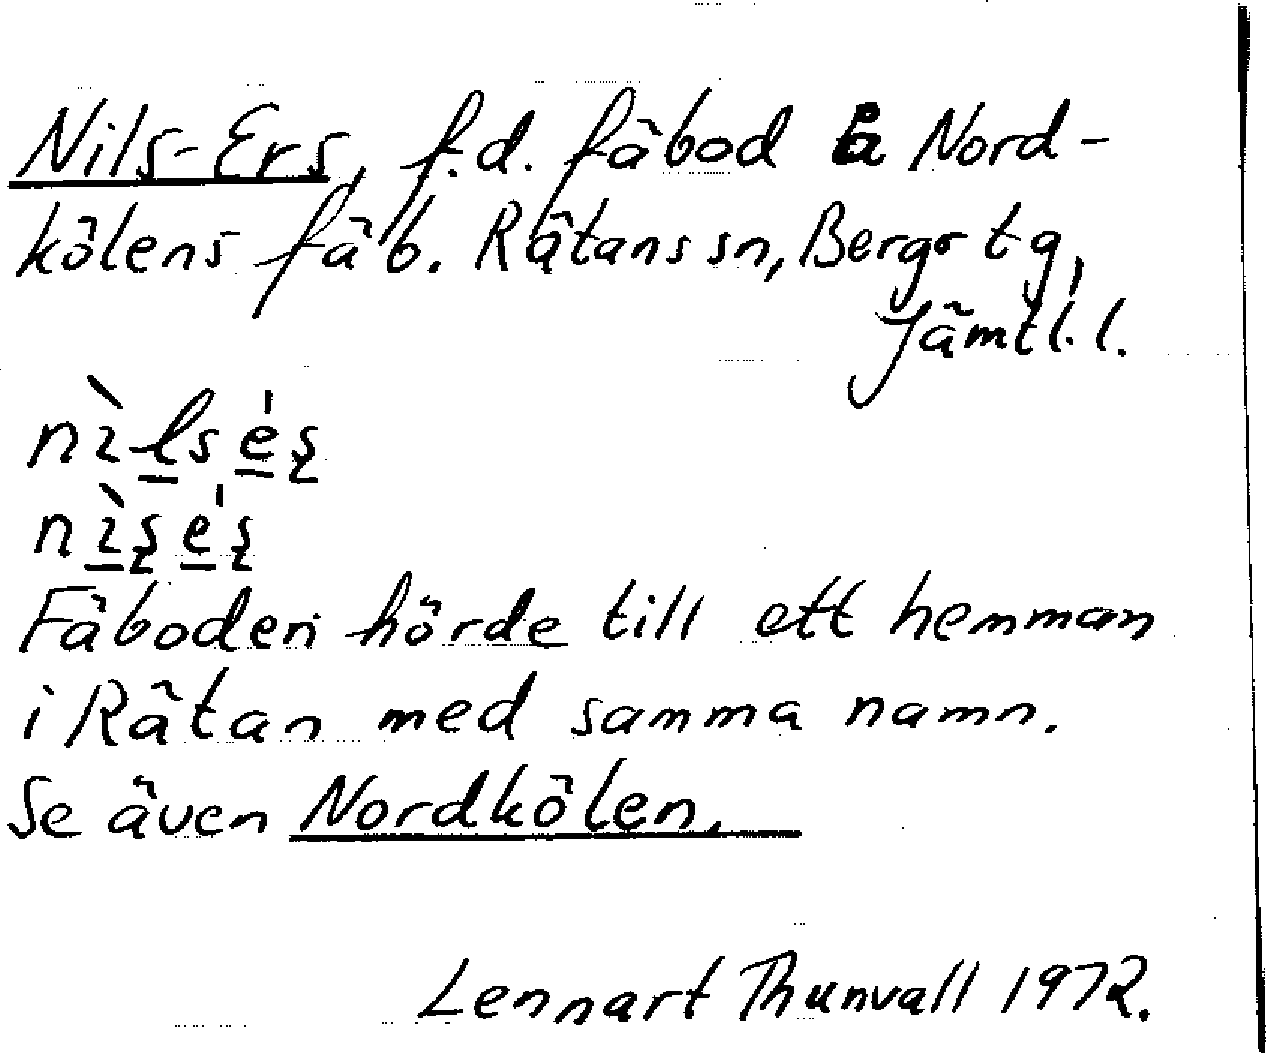 Nils-Ers, f.d. fäbod å Nord-
kölens fäb. Rätans sn, Bergs tg,
Jämtl. l.
nìlsés
nìsés
Fäboden hörde till ett hemman
i Rätan med samma namn.
Se även Nordkölen.
Lennart Thunvall 1972.